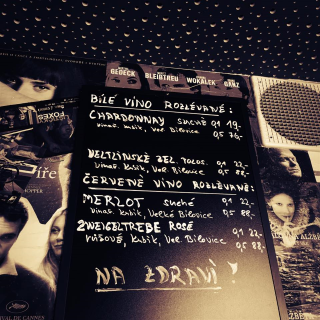 GEDECK BLEIBTREU WOKALEK GANZ
BÍLÉ VÍNO ROZLÉVANÉ:
CHARDONNAY SUCHÉ 0,1 19,-
Vinař. Kubík, Vel. Bílovice 0,5 76,-
VELTLÍNSKÉ ZEL. POLOS. 0,1 22,-
Vinař. Kubík, Vel. Bílovice 0,5 88,-
ČERVENÉ VÍNO ROZLÉVANÉ:
MERLOT suché 0,1 22,-
Vinař. Kubík, Velké Bílovice 0,5 88,-
ZWEIGELTREBE ROSÉ 0,1 22,-
růžové, Kubík, Vel. Bílovice 0,5 88,-
NA ZDRAVÍ!
FESTIVAL DE CANNES